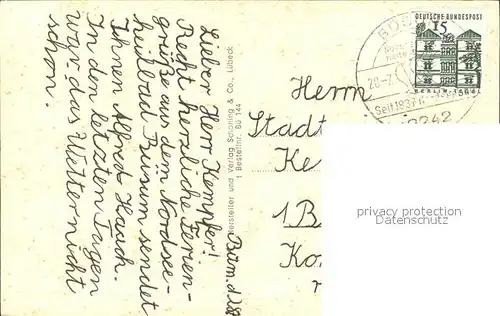 Büsum, d. 28
Lieber Herr Kempfer!
Recht herzliche Ferien-
grüße aus dem Nordsee-
heilbad Büsum sendet
Ihnen Alfred Hauch.
In den letzten Tagen
war das Wetter nicht
schon.
Hersteller und Verlag Schöning & Co., Lübeck
Bestellnr. Bü 164
DEUTSCHE BUNDESPOST
15
BERLIN
BÜS
20.-7.
Seit 1837
2242
Herrn
Stadt
Ke
1 B
Ko
privacy protection
Datenschutz